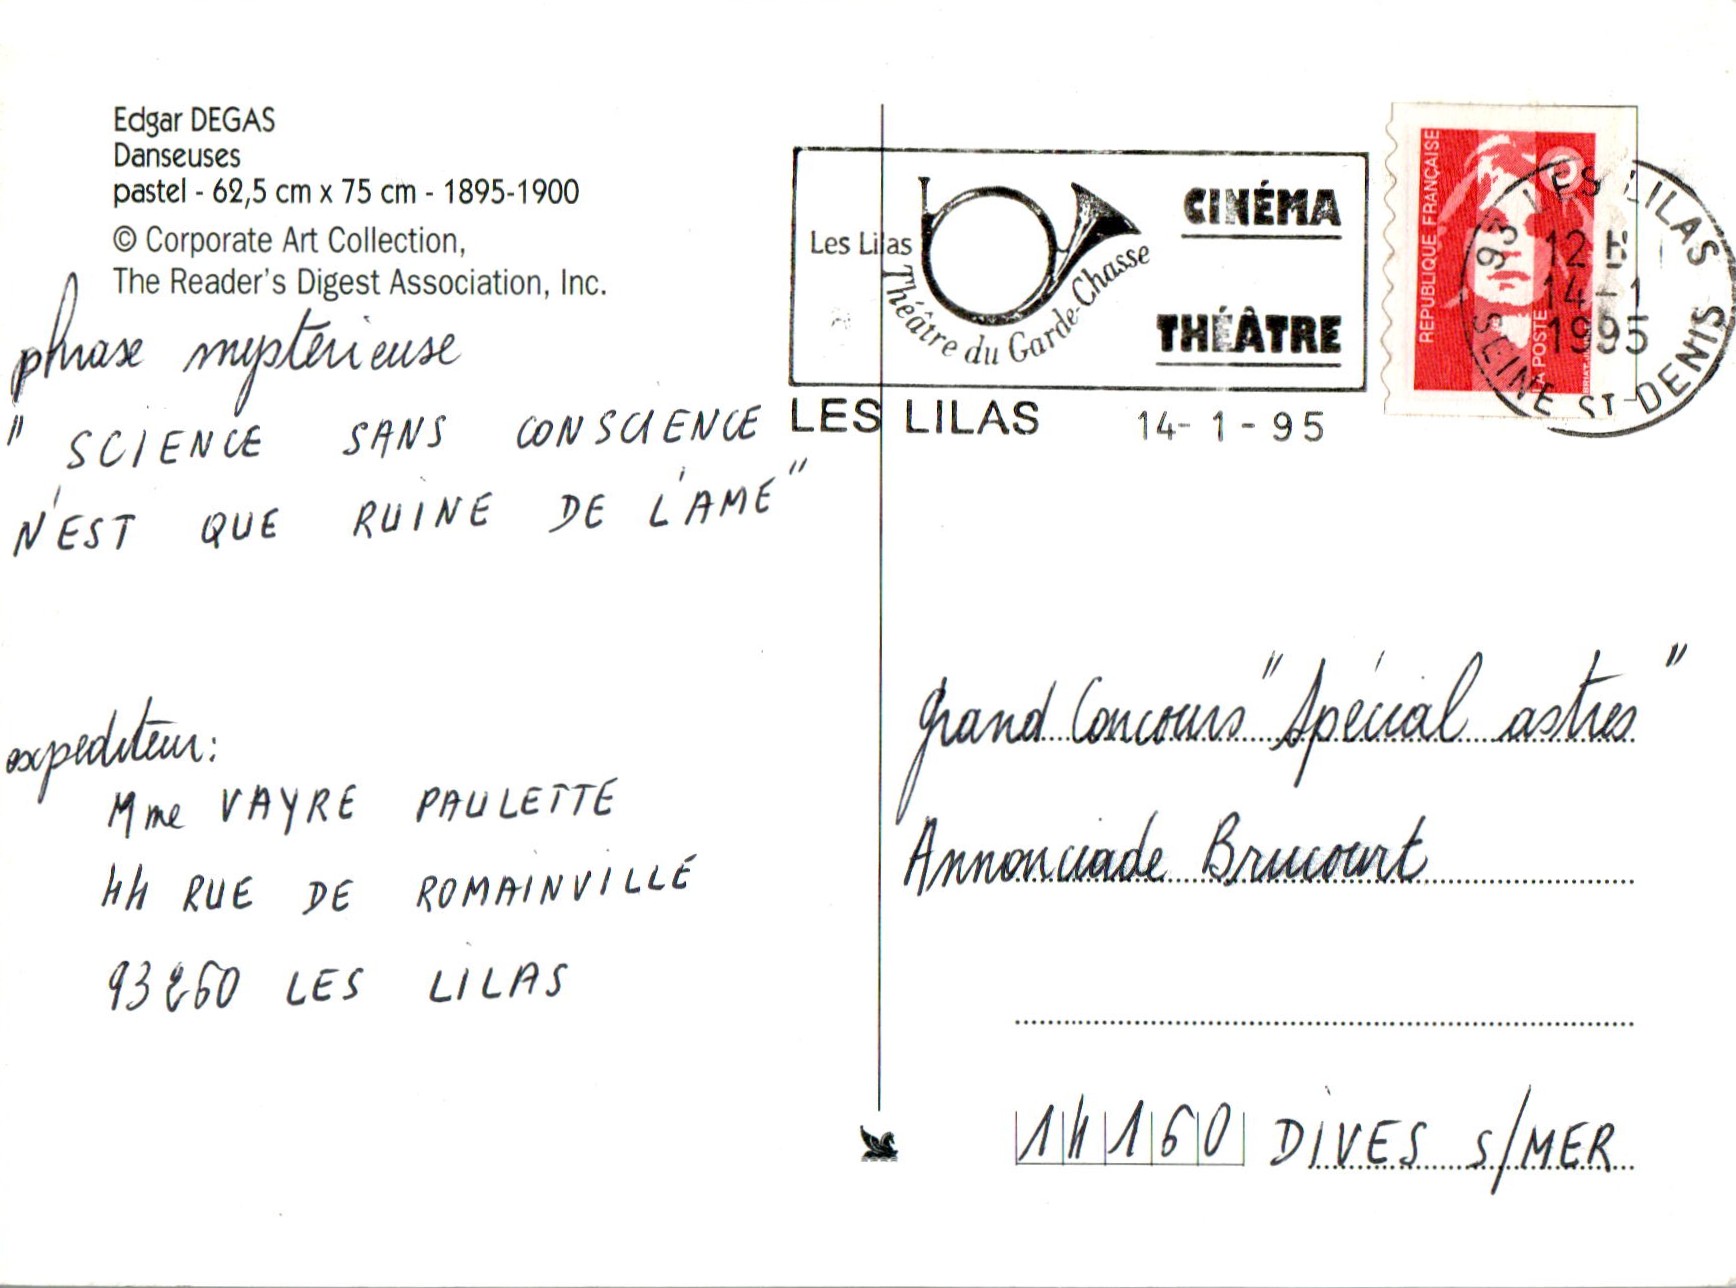 Edgar DEGAS
Danseuses
pastel - 62,5 cm x 75 cm - 1895-1900
© Corporate Art Collection,
The Reader's Digest Association, Inc.
phrase mystérieuse
" SCIENCE SANS CONSCIENCE
N'EST QUE RUINE DE L'AME"
expediteur:
Mme VAYRE PAULETTE
44 RUE DE ROMAINVILLE
93260 LES LILAS
Les Lilas
Théâtre du Garde-Chasse
CINÉMA
THÉÂTRE
LES LILAS 14-1-95
REPUBLIQUE FRANÇAISE
LA POSTE
93 LES LILAS
12 H
14-1
1995
SEINE ST-DENIS
grand Concours "Spécial astres"
Annonciade Brucourt
14160 DIVES S/MER